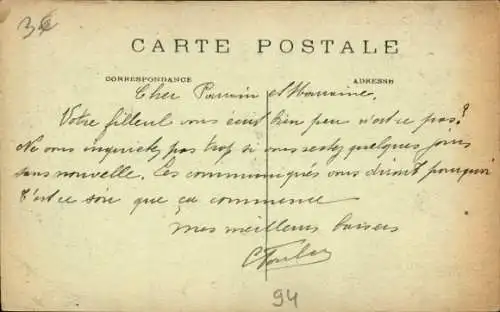 3€
CARTE POSTALE
CORRESPONDANCE
ADRESSE
Cher Parrain et Marraine,
Votre filleul vous écrit bien peu n'est ce pas?
Ne vous inquietez pas trop si vous restez quelques jours
sans nouvelle. Les communiqués vous diront pourquoi
C'est ce soir que ça commence
Mes meilleurs baisers
94